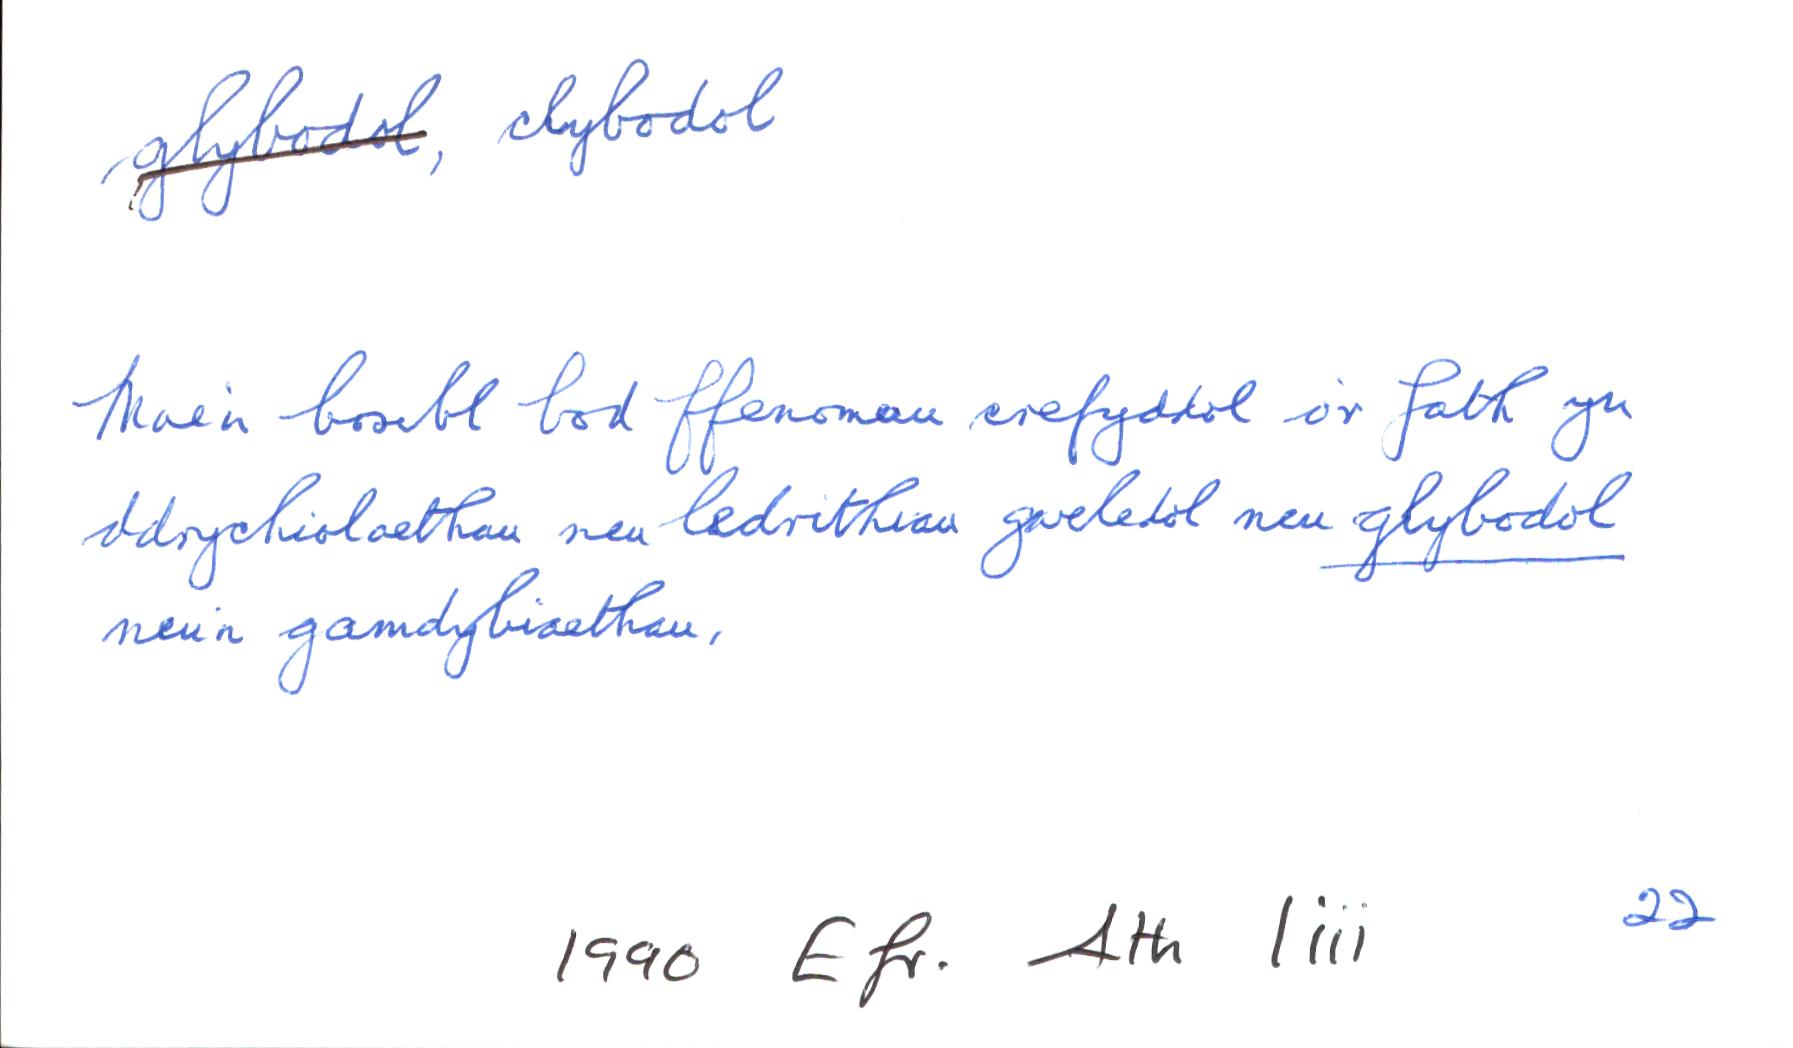 glybodol, clybodol
Mae'n bosibl bod ffenomenau crefyddol o'r fath yn
ddrychiolaethau neu ledrithiau gweledol neu glybodol
neu'n gamdybiaethau.
22
1990 Efr. Ath liii